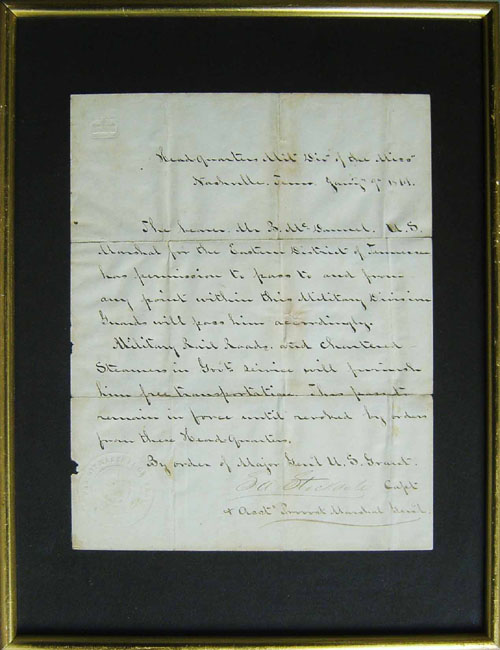 Head Quarters Mil. Div. of the Miss
Nashville, Tenn. 9th 1864.
The bearer Mr. B. McDannel. U.S.
Marshal for the Eastern District of Tennessee
has permission to pass to and from
any point within this Military Division
Guards will pass him accordingly.
Military Rail Roads, and Chartered
Steamers in Govt service will furnish
him free transportation. This pass to
remain in force until revoked by orders
from these Head Quarters.
By order of Major Genl U. S. Grant.
Capt
& Actg Provost Marshal Genl